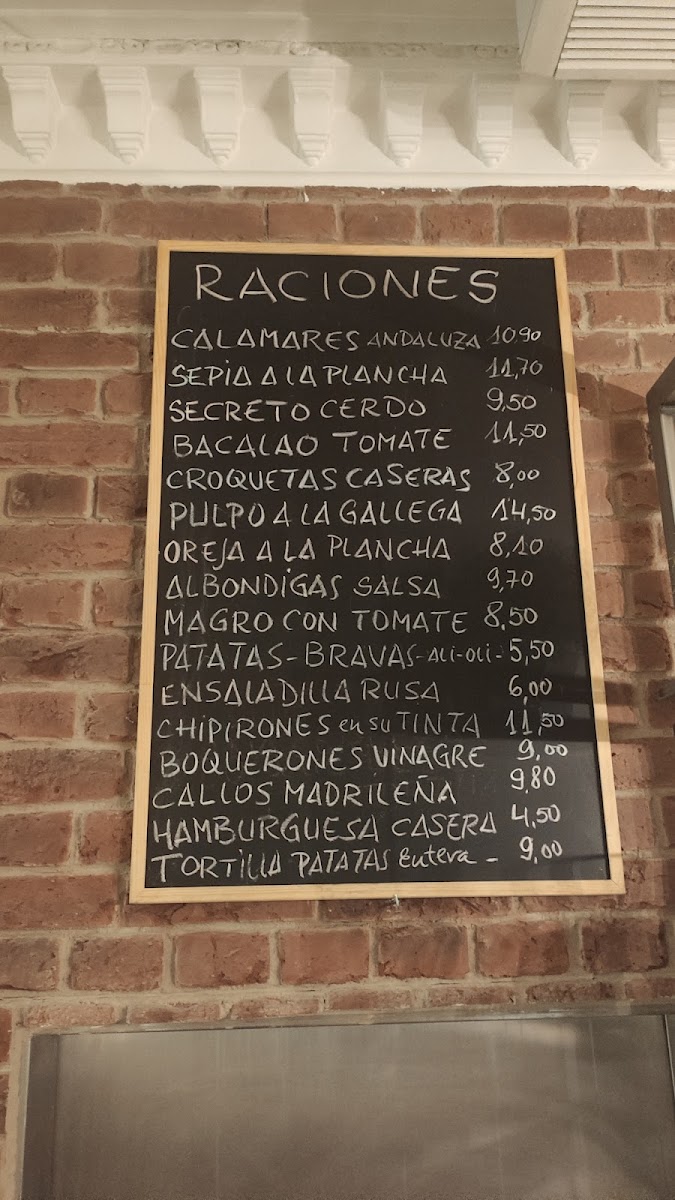 RACIONES
CALAMARES ANDALUZA 10,90
SEPIA A LA PLANCHA 11,70
SECRETO CERDO 9,50
BACALAO TOMATE 11,50
CROQUETAS CASERAS 8,00
PULPO A LA GALLEGA 14,50
OREJA A LA PLANCHA 8,10
ALBONDIGAS SALSA 9,70
MAGRO CON TOMATE 8,50
PATATAS-BRAVAS-ALI-OLI- 5,50
ENSALADILLA RUSA 6,00
CHIPIRONES en su TINTA 11,50
BOQUERONES VINAGRE 9,00
CALLOS MADRILEÑA 9,80
HAMBURGUESA CASERA 4,50
TORTILLA PATATAS Entera - 9,00